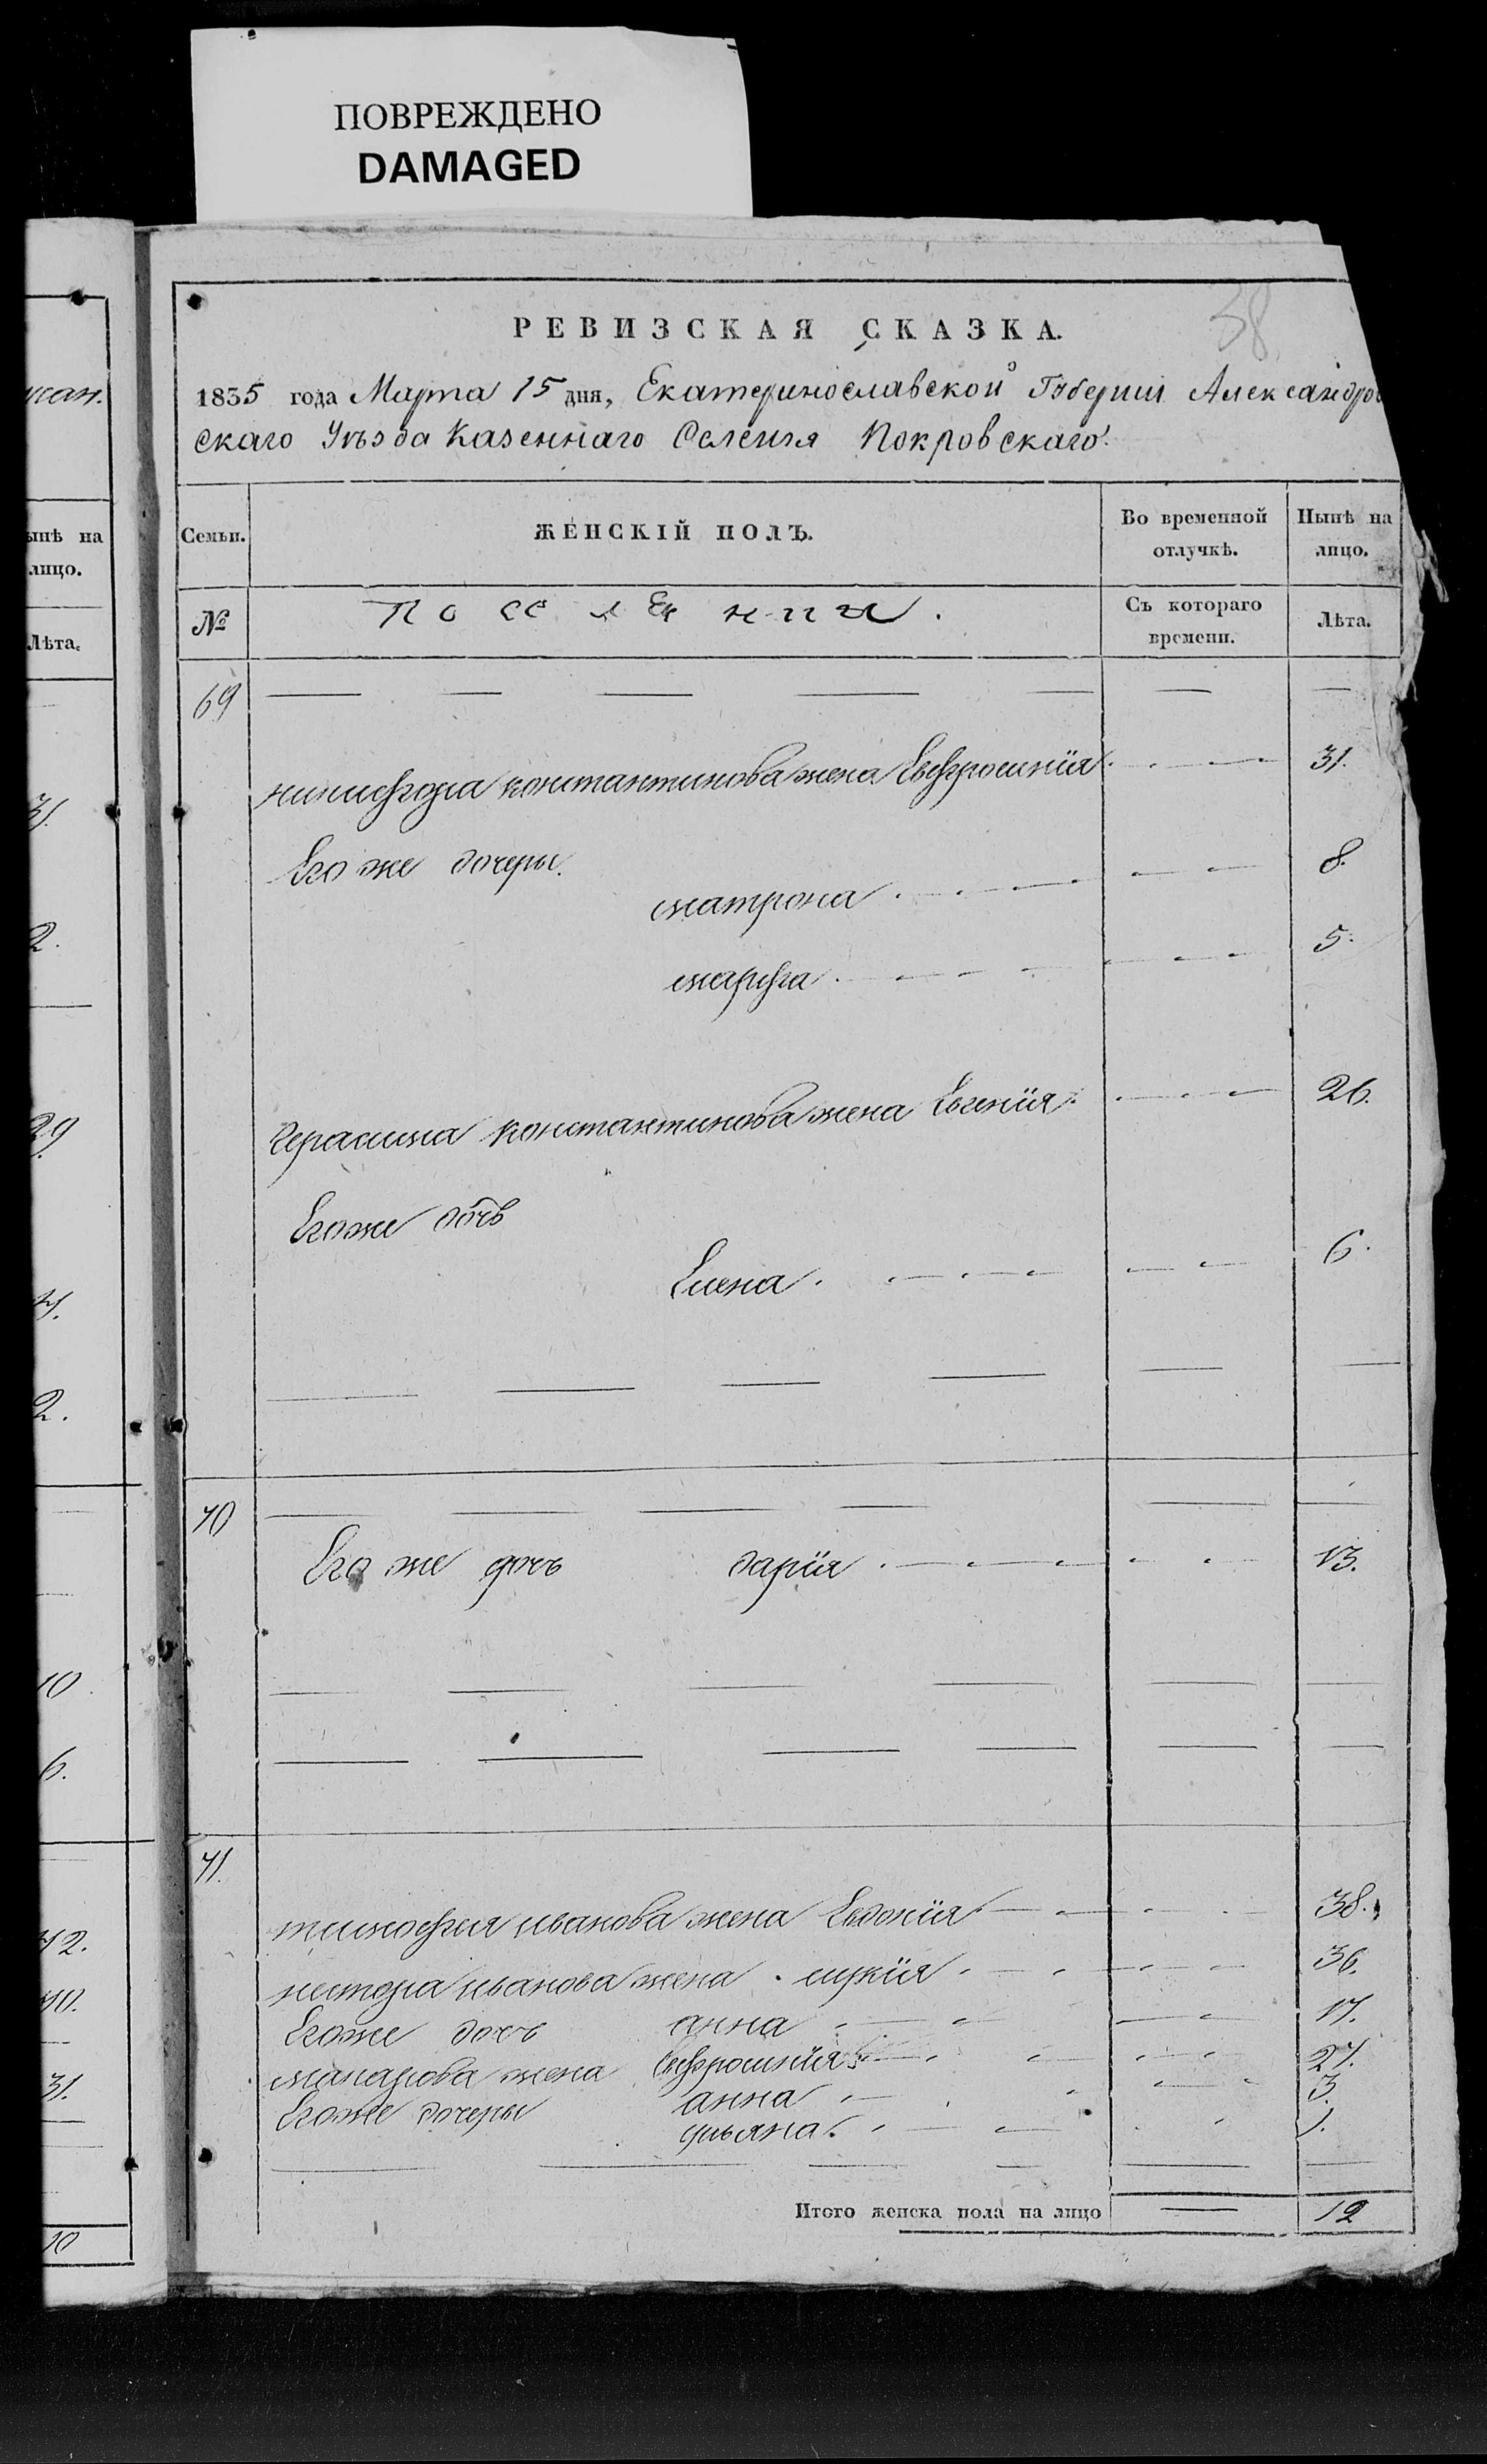 ПОВРЕЖДЕНО
DAMAGED
38
РЕВИЗСКАЯ СКАЗКА.
1835 года Марта 15 дня, Екатеринославской Губернии Александров
скаго Уѣзда Казеннаго Селенія Покровскаго.
Семьи. ЖЕНСКІЙ ПОЛЪ. Во временной отлучкѣ. Нынѣ на лицо.
№ Съ котораго времени. Лѣта.
69
никифора константинова жена Евфросинія 31.
Его же дочери
матрона 8.
марфа 5.
Герасима константинова жена Евгенія 26.
Егоже дочь
Елена 6.
70
Его же дочь дарія 13.
71.
тимофея иванова жена Евдокія 38.
нестора иванова жена лукія 36.
Егоже дочь анна 17.
макарова жена Евфросинія 27.
Егоже дочери анна 3.
ульяна 1.
Итого женска пола на лицо 12
ынѣ на
лицо.
Лѣта.
31.
2.
29
2.
10
6.
10.
31.
10